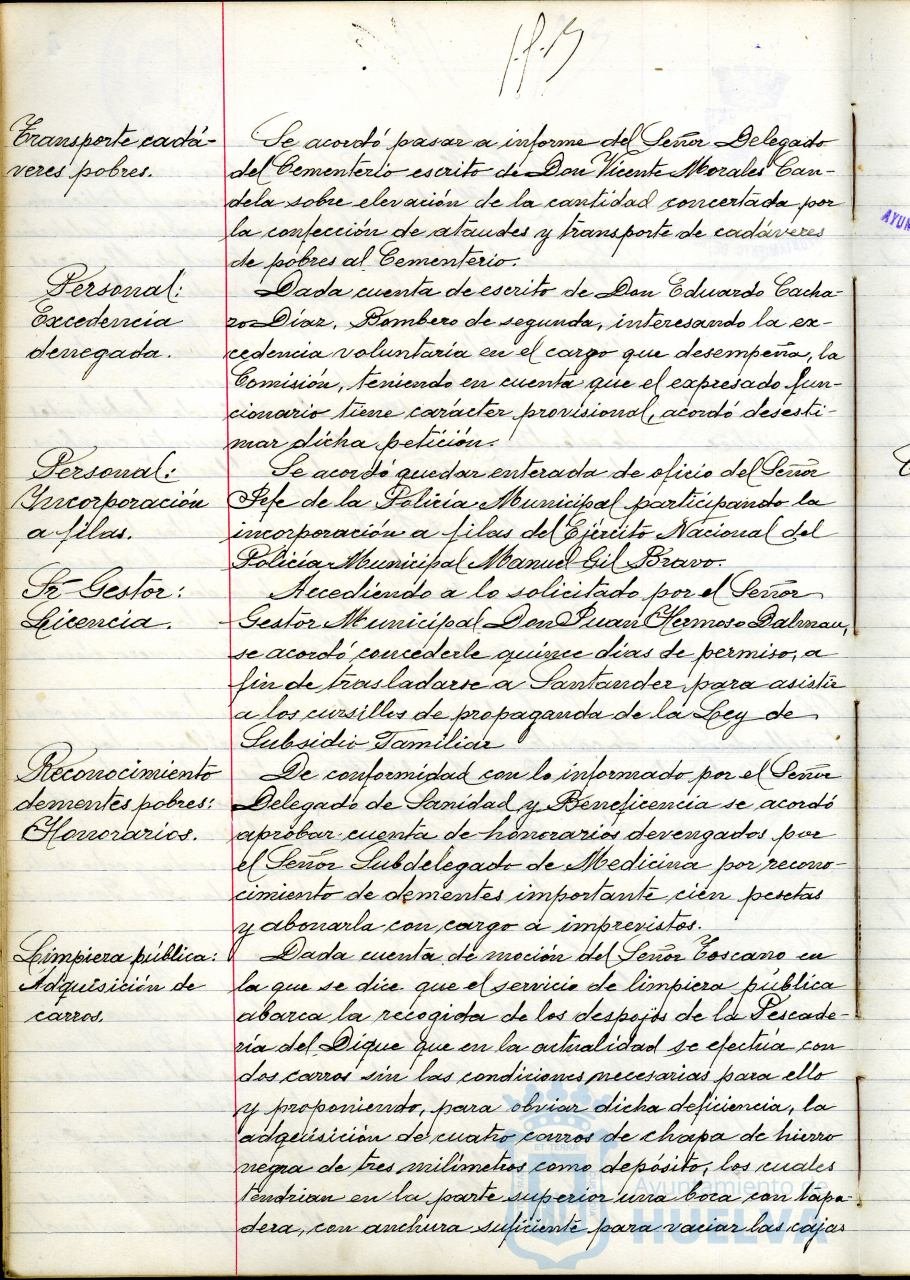 Transporte cadá-
veres pobres.
Se acordó pasar a informe del Señor Delegado
del Cementerio escrito de Don Vicente Morales Can-
dela sobre elevación de la cantidad concertada por
la confección de ataudes y transporte de cadáveres
de pobres al Cementerio.
Personal:
Excedencia
denegada.
Dada cuenta de escrito de Don Eduardo Cacha-
ro Díaz, Bombero de segunda, interesando la ex-
cedencia voluntaria en el cargo que desempeña, la
Comisión, teniendo en cuenta que el expresado fun-
cionario tiene carácter provisional, acordó desesti-
mar dicha petición.
Personal:
Yncorporación
a filas.
Se acordó quedar enterada de oficio del Señor
Jefe de la Policía Municipal participando la
incorporación a filas del Ejército Nacional del
Policía Municipal Manuel Gil Bravo.
Sr. Gestor:
Licencia.
Accediendo a lo solicitado por el Señor
Gestor Municipal Don Juan Hermoso Dalmau,
se acordó concederle quince días de permiso, a
fin de trasladarse a Santander para asistir
a los cursillos de propaganda de la Ley de
Subsidio Familiar
Reconocimiento
dementes pobres:
Honorarios.
De conformidad con lo informado por el Señor
Delegado de Sanidad y Beneficencia se acordó
aprobar cuenta de honorarios devengados por
el Señor Subdelegado de Medicina por recono-
cimiento de dementes importante cien pesetas
y abonarla con cargo a imprevistos.
Limpiera pública:
Adquisición de
carros.
Dada cuenta de moción del Señor Toscano en
la que se dice que el servicio de limpiera pública
abarca la recogida de los despojos de la Pescade-
ría del Dique que en la actualidad se efectúa con
dos carros sin las condiciones necesarias para ello
y proponiendo, para obviar dicha deficiencia, la
adquisición de cuatro carros de chapa de hierro
negra de tres milímetros como depósito, los cuales
tendrian en la parte superior una boca con tapa-
dera, con anchura suficiente para vaciar las cajas
Ayuntamiento de
HUELVA
AYUN